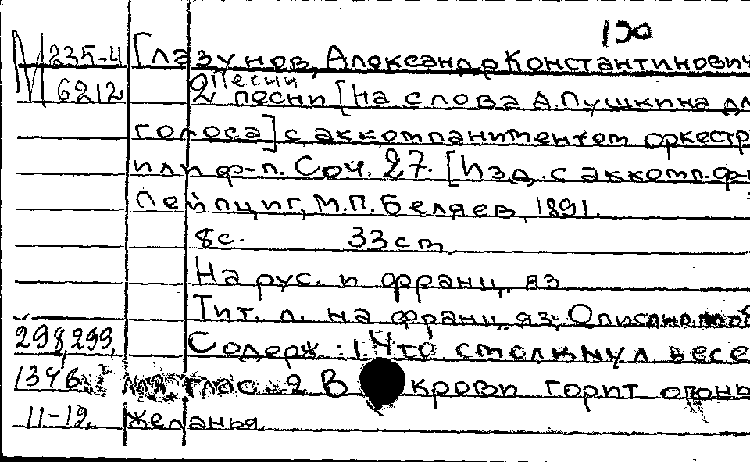 190
М 235-4 Глазунов, Александр Константинович
6212 2 песни [На слова А. Пушкина дл
Песни
голоса] с аккомпаниментом оркестр
или ф-п. Соч. 27. [Изд. с аккомп. ф-п
Лейпциг, М.П. Беляев, 1891.
8с. 33cm.
На рус. и франц. яз
Тит. л. на франц. яз.
298,299, Содерж: 1. Что смолкнул весе
глас. 2 В крови горит огонь
11-12. желанья